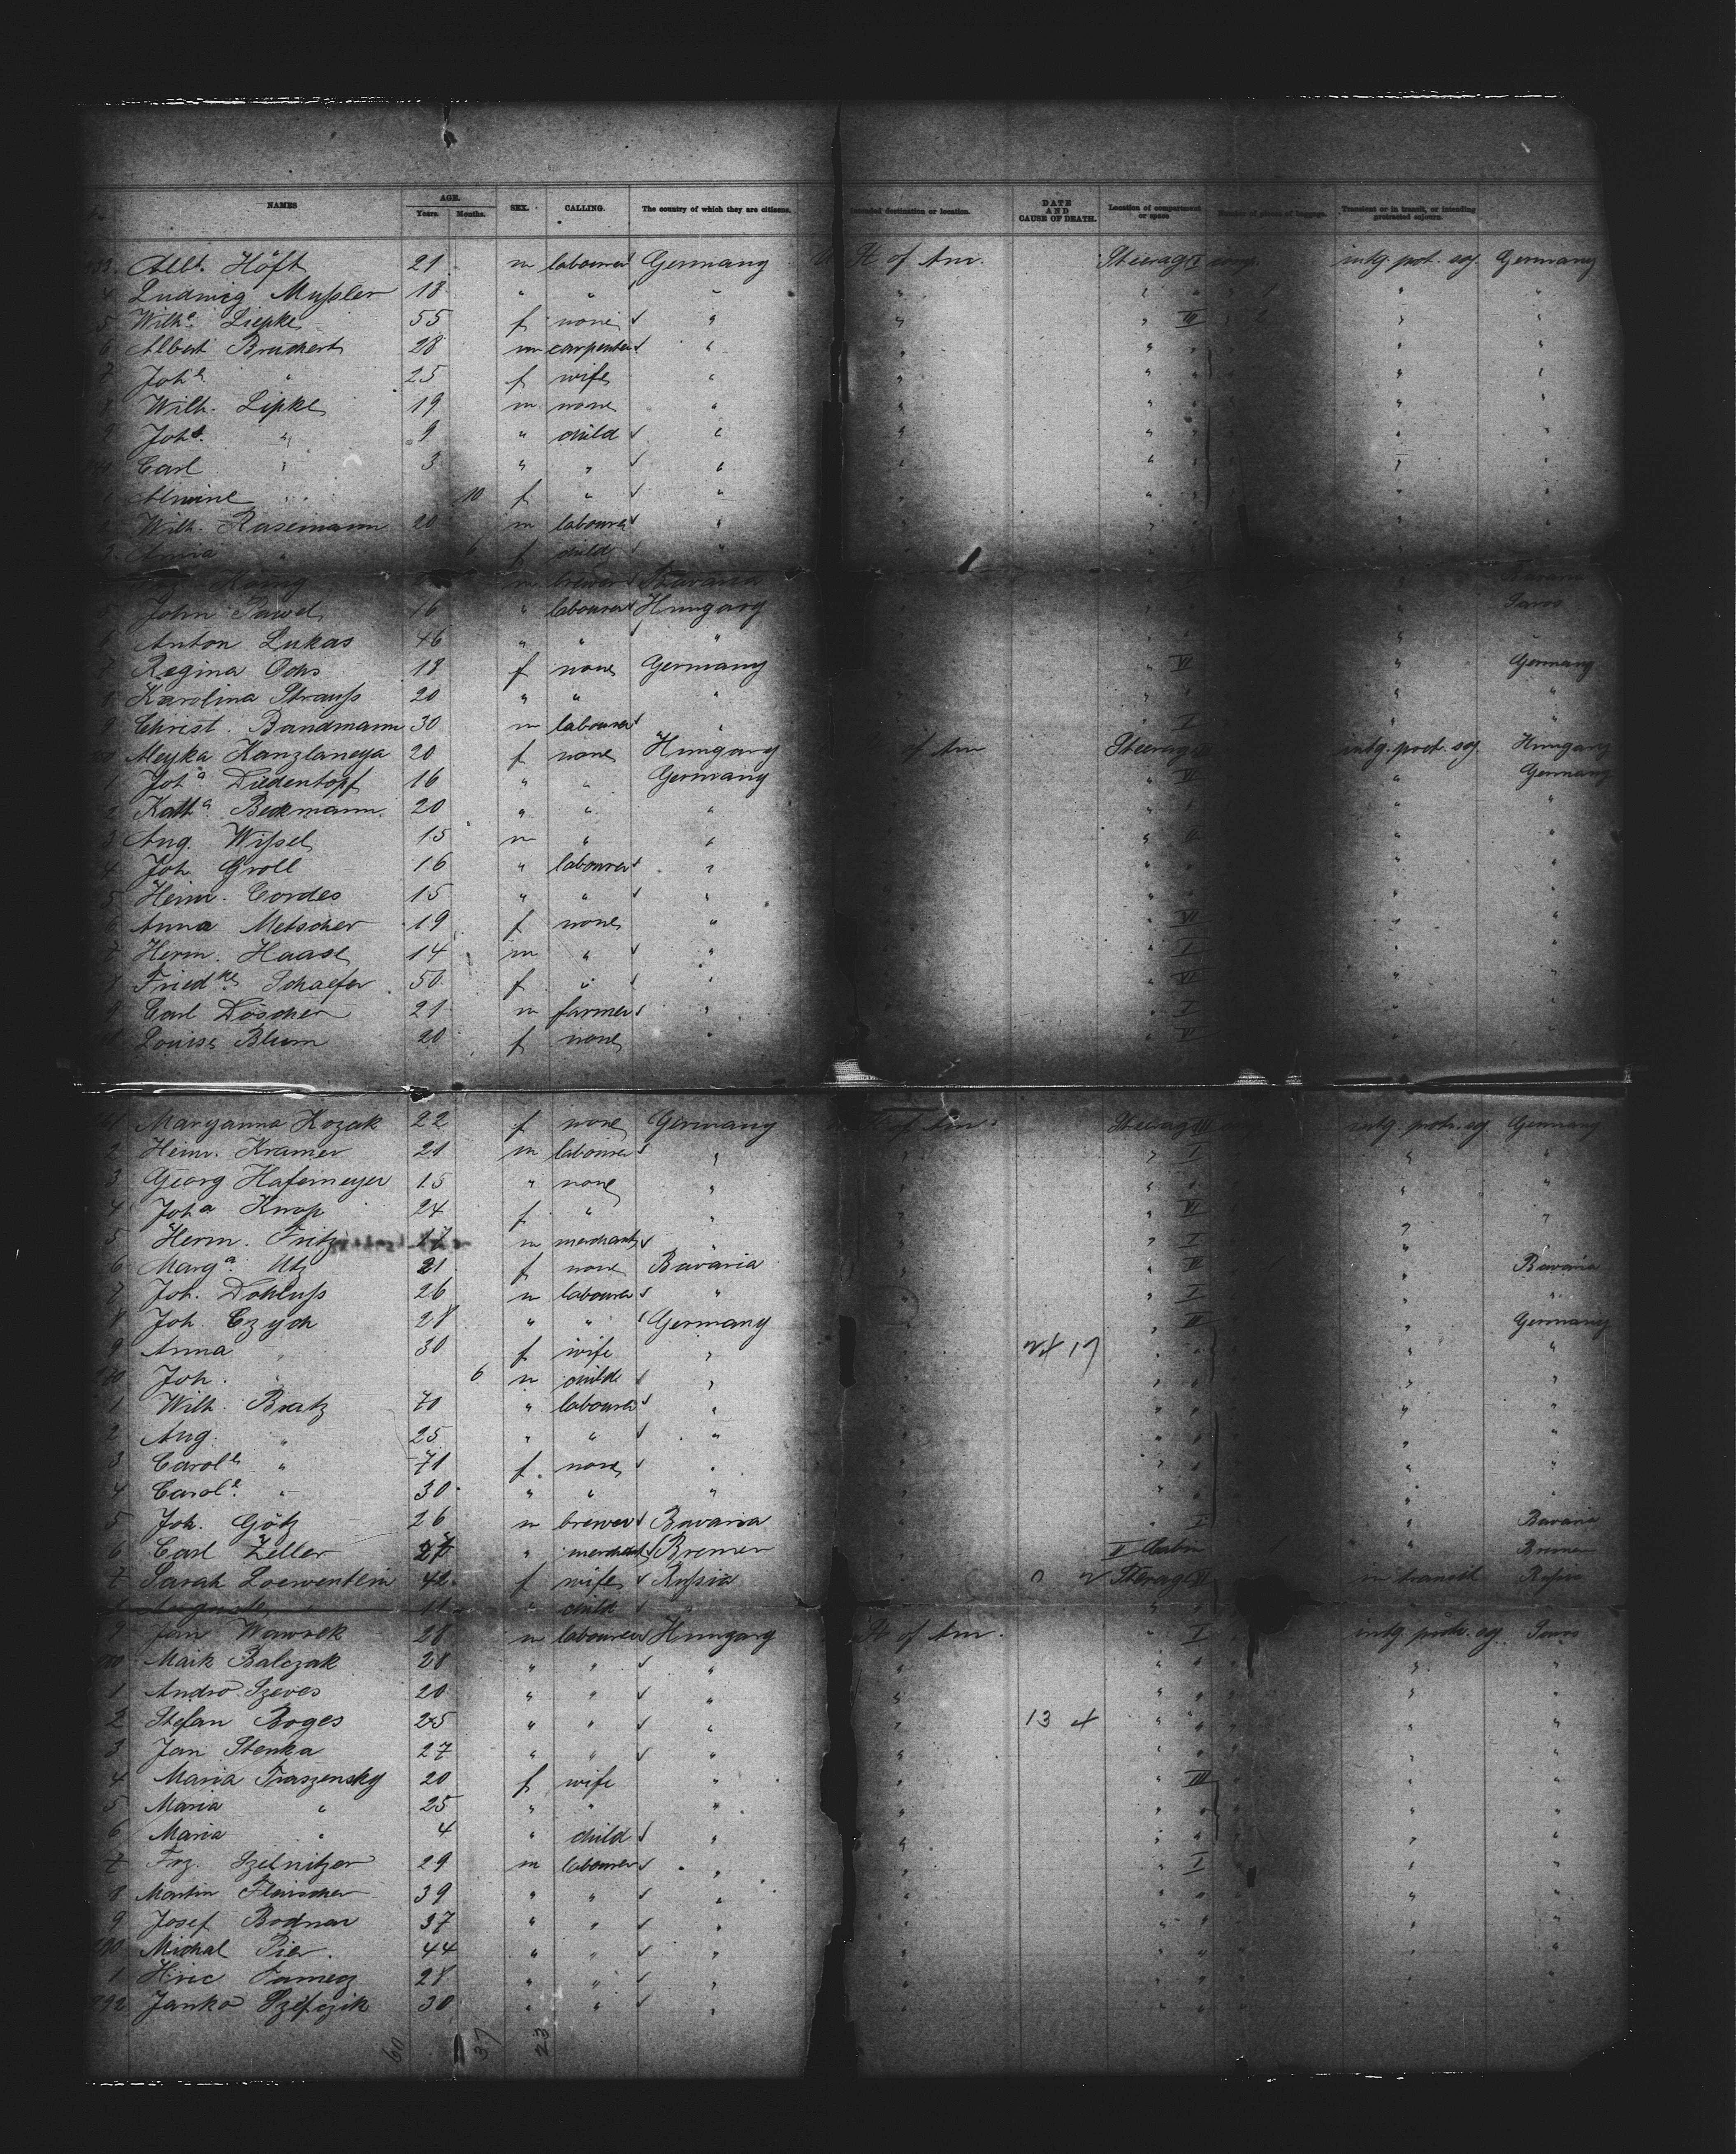 NAMES AGE. Years. Months. SEX. CALLING. The country of which they are citizens. Intended destination or location. DATE AND CAUSE OF DEATH. Location of compartment or space Number of pieces of luggage. Transient or in transit, or intending protracted sojourn.
Albt. Höft 21 m labourer Germany St of Am. Steerage I comp. intg. prot. soj. Germany
4 Ludwig Mußler 18 " " " " " " " "
5 Wilhe. Liepke 55 f none " " " III " "
6 Albert Bruchert 28 m carpenter " " " " " "
7 Johe " 25 f wife " " " " " "
8 Wilh. Lipke 19 m none " " " " " "
9 Joh. " 9 " child " " " " " "
Carl " 3 " " " " " " " "
Almine " 10 f " " " " " " "
2 Wilh. Rasemann 20 m labourer " " " " " "
3 Anna " 6 f child " "
König m brewer Bavaria Bavaria
5 John Pawel 16 " labourer Hungary " Saros
6 Anton Lukas 46 " " " " "
7 Regina Ochs 18 f none Germany " VI " Germany
8 Karolina Strauß 20 " " " " " " "
9 Christ. Bandmann 30 m labourer " " I " "
Meyka Kanzlaneya 20 f none Hungary of Am Steerage intg. prot. soj. Hungary
1 Joha Diedentopf 16 " " Germany " VI " Germany
2 Katha Beckmann 20 " " " " " "
3 Aug. Wißel 15 m " " " " "
4 Joh Groll 16 " labourer " " " "
5 Heinr. Cordes 15 " " " " " "
6 Anna Metscher 19 f none " " VI " "
7 Herm. Haase 14 m " " " I " "
8 Friedke Schaefer 50 f " " " VI " "
9 Carl Döscher 21 m farmer " " I " "
Louise Blum 20 f none " " VI " "
61 Maryanna Kozak 22 f none Germany of Am. Steerage III intg. protr. soj Germany
2 Heinr. Kramer 21 m labourer " " " I " "
3 Georg Hafemeyer 15 " none " " " " " "
4 Joha Knop 24 f " " " " VI " "
5 Herm. Fritz 17 m merchant " " " I "
6 Marga. Utz 21 f none Bavaria " " VI " Bavaria
7 Joh. Dohluß 26 m labourer " " " I " "
8 Joh. Czych 28 " " Germany " " III " Germany
9 Anna " 30 f wife " " " " " "
70 Joh. " 6 m child " " " " " "
1 Wilh. Bratz 70 " labourer " " " " " "
2 Aug. " 25 " " " " " " " "
3 Carole " 71 f none " " " " " "
4 Carole. " 30 " " " " " " " "
5 Joh. Götz 26 m brewer Bavaria " " I " Bavaria
6 Carl Zeller 27 " merchant Bremen II Cabin " Bremen
7 Sarah Loewenthin 42 f wife Rußia Steerage VI in transit Rußia
8 Auguste " 11 " child " "
9 Jan Wawrek 28 m labourer Hungary St of Am. " I intg. protr. soj Saros
80 Maik Balczak 28 " " " " " " " "
1 Andro Szeves 20 " " " " " " " "
2 Stefan Boges 25 " " " " 13 4 " " " "
3 Jan Stenka 27 " " " " " " " "
4 Maria Traszensky 20 f wife " " " III " "
5 Maria " 25 " " " " " " " "
6 Maria " 4 " child " " " " " "
7 Frz. Szelnitzer 29 m labourer " " " I " "
8 Martin Fleischer 39 " " " " " " " "
9 Josef Bodnar 37 " " " " " " " "
790 Michal Pier. 44 " " " " " " " "
1 Hric 28 " " " " " " " "
792 Janko 30 " " " " " " " "
60 37 23